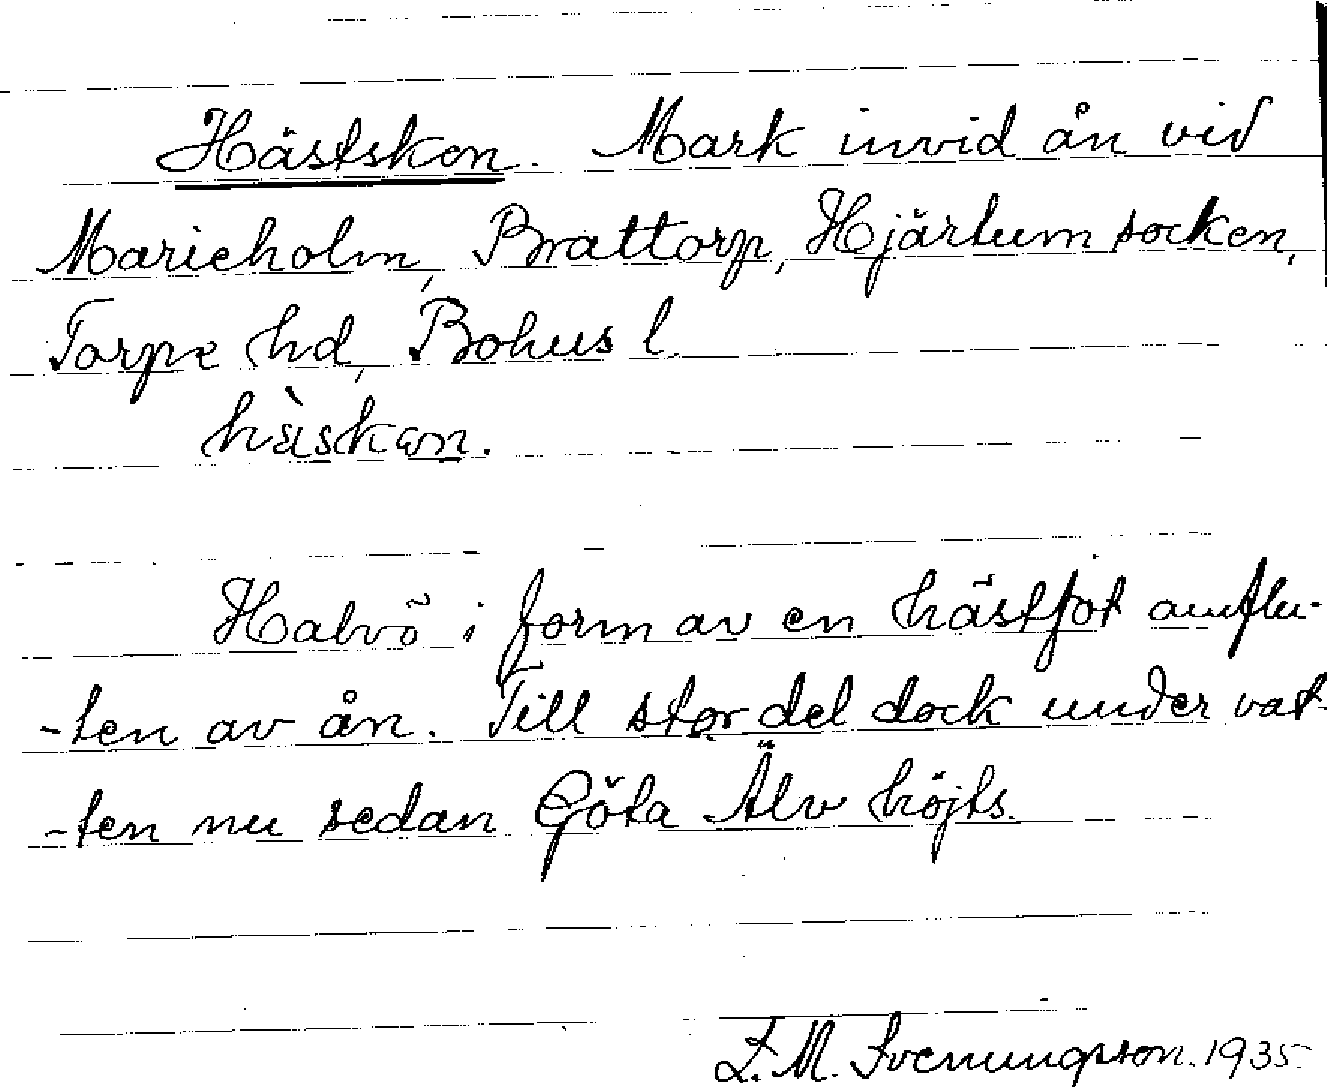 Hästskon. Mark invid ån vid
Marieholm, Brattorp, Hjärtum socken,
Torpe hd, Bohus l.
hàskωn.
Halvö i form av en hästfot omflu-
-ten av ån. Till stor del dock under vat-
-ten nu sedan Göta Älv höjts.
F. M. Svenungsson. 1935.